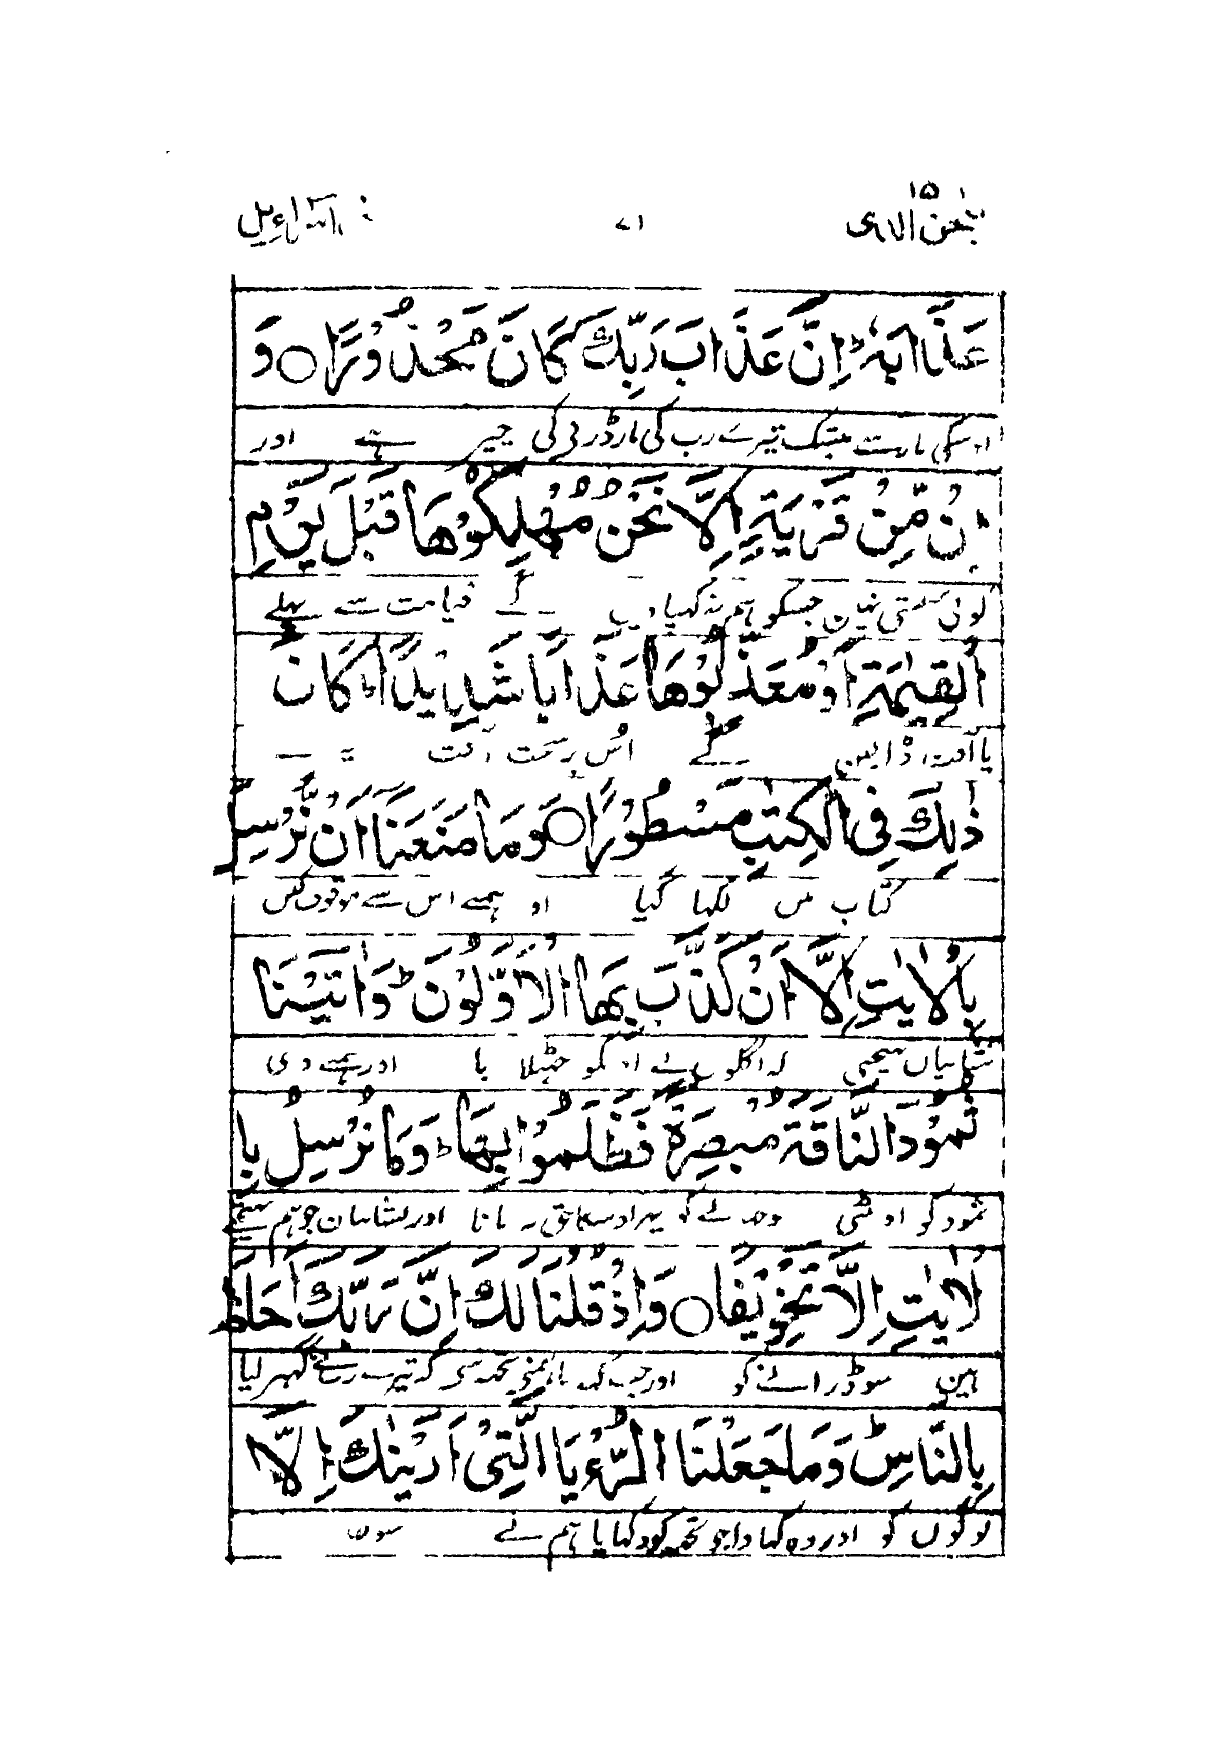 ۱۵
۷۱
عَذَابَهٗ ؕ اِنَّ عَذَابَ رَبِّكَ كَانَ مَحْذُوْرًا ○ وَ
تیرے رب کی مار ڈرنے کی چیز ہے اور
اِنْ مِّنْ قَرْيَةٍ اِلَّا نَحْنُ مُهْلِكُوْهَا قَبْلَ يَوْمِ
کوئی جسکو ہم نہ کے قیامت سے پہلے
الْقِيٰمَةِ اَوْ مُعَذِّبُوْهَا عَذَابًا شَدِيْدًا ؕ كَانَ
یا آفت ڈالیں گے اس پر سخت آفت
ذٰلِكَ فِى الْكِتٰبِ مَسْطُوْرًا ○ وَمَا مَنَعَنَا اَنْ نُّرْسِلَ
کتاب میں لکھا گیا اور ہمنے اس سے موقوف کیں
بِالْاٰيٰتِ اِلَّا اَنْ كَذَّبَ بِهَا الْاَوَّلُوْنَ ؕ وَاٰتَيْنَا
نشانیاں بھیجنی کہ اگلوں نے انکو جھٹلایا اور ہمنے دی
ثَمُوْدَ النَّاقَةَ مُبْصِرَةً فَظَلَمُوْا بِهَا ؕ وَمَا نُرْسِلُ بِا
ثمود کو اونٹنی کو پھر اوسکا حق نہ مانا اور نشانیاں جو ہم بھیجتے
لْاٰيٰتِ اِلَّا تَخْوِيْفًا ○ وَاِذْ قُلْنَا لَكَ اِنَّ رَبَّكَ اَحَاطَ
ہیں سو ڈرانے کو اور جب کہدیا ہمنے تجھ سے کہ تیرے رب نے گھیر لیا
بِالنَّاسِ ؕ وَمَا جَعَلْنَا الرُّءْيَا الَّتِىْ اَرَيْنٰكَ اِلَّا
لوگوں کو اور وہ دکھاوا جو تجھکو دکھایا ہم نے سو